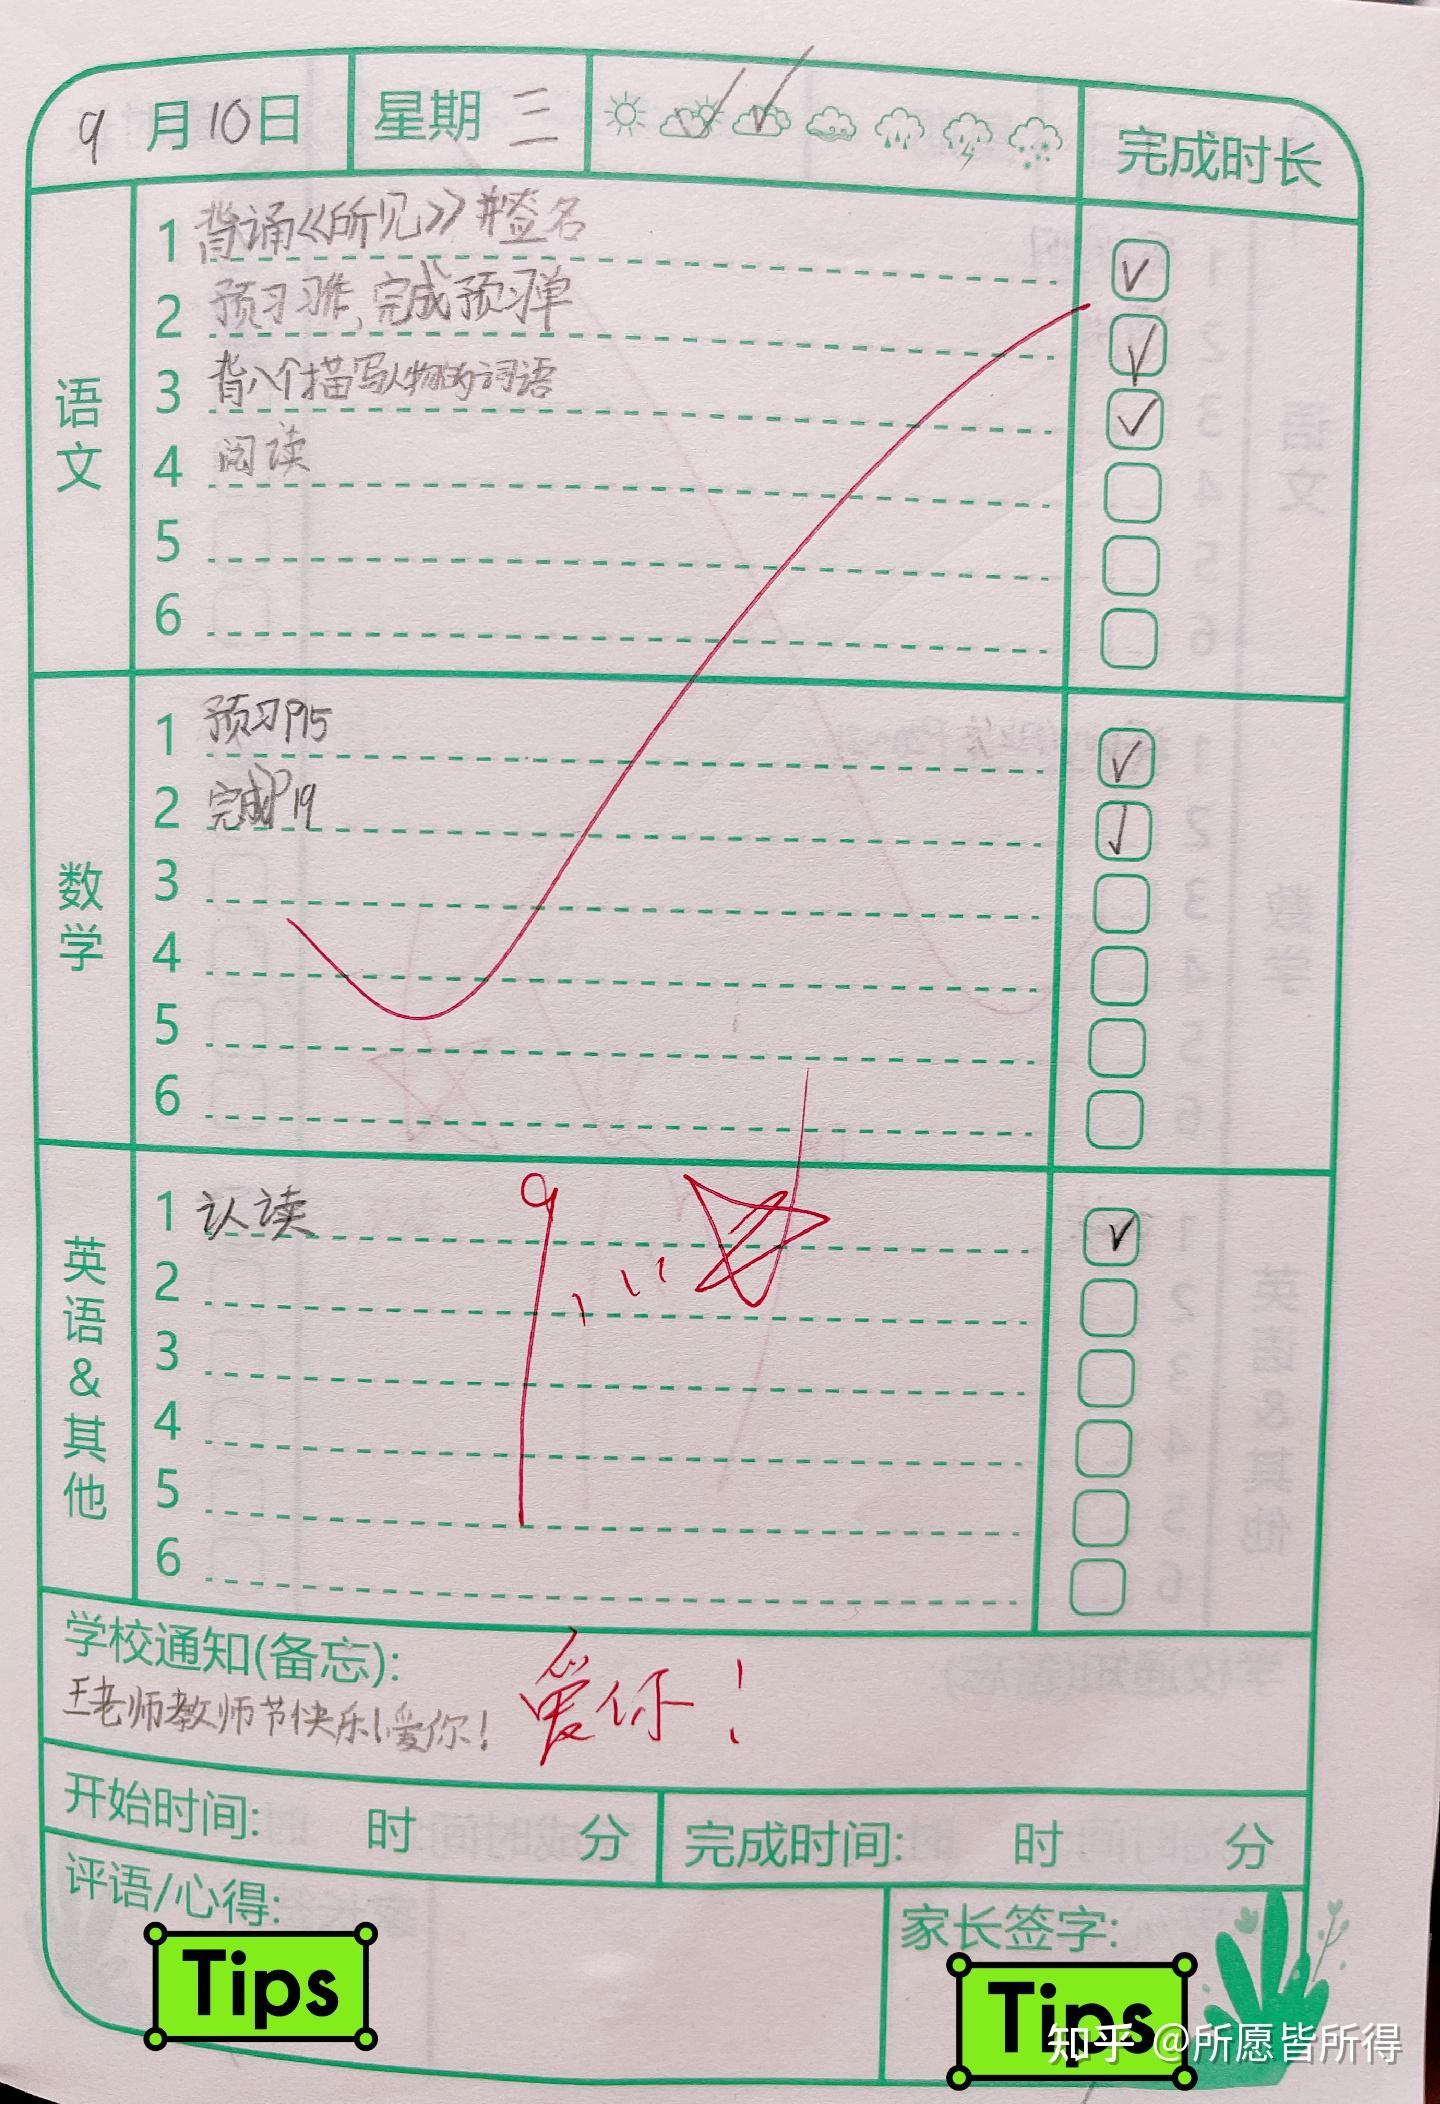 9月10日 星期三 完成时长
语文
1 背诵《所见》并签名
2 预习习作,完成预习单
3 背八个描写人物的词语
4 阅读
5
6
数学
1 预习P15
2 完成P19
3
4
5
6
英语&其他
1 认读
2
3
4
5
6
学校通知(备忘):
王老师教师节快乐!爱你!
爱你!
开始时间: 时 分 完成时间: 时 分
评语/心得: 家长签字:
Tips
Tips
知乎 @所愿皆所得